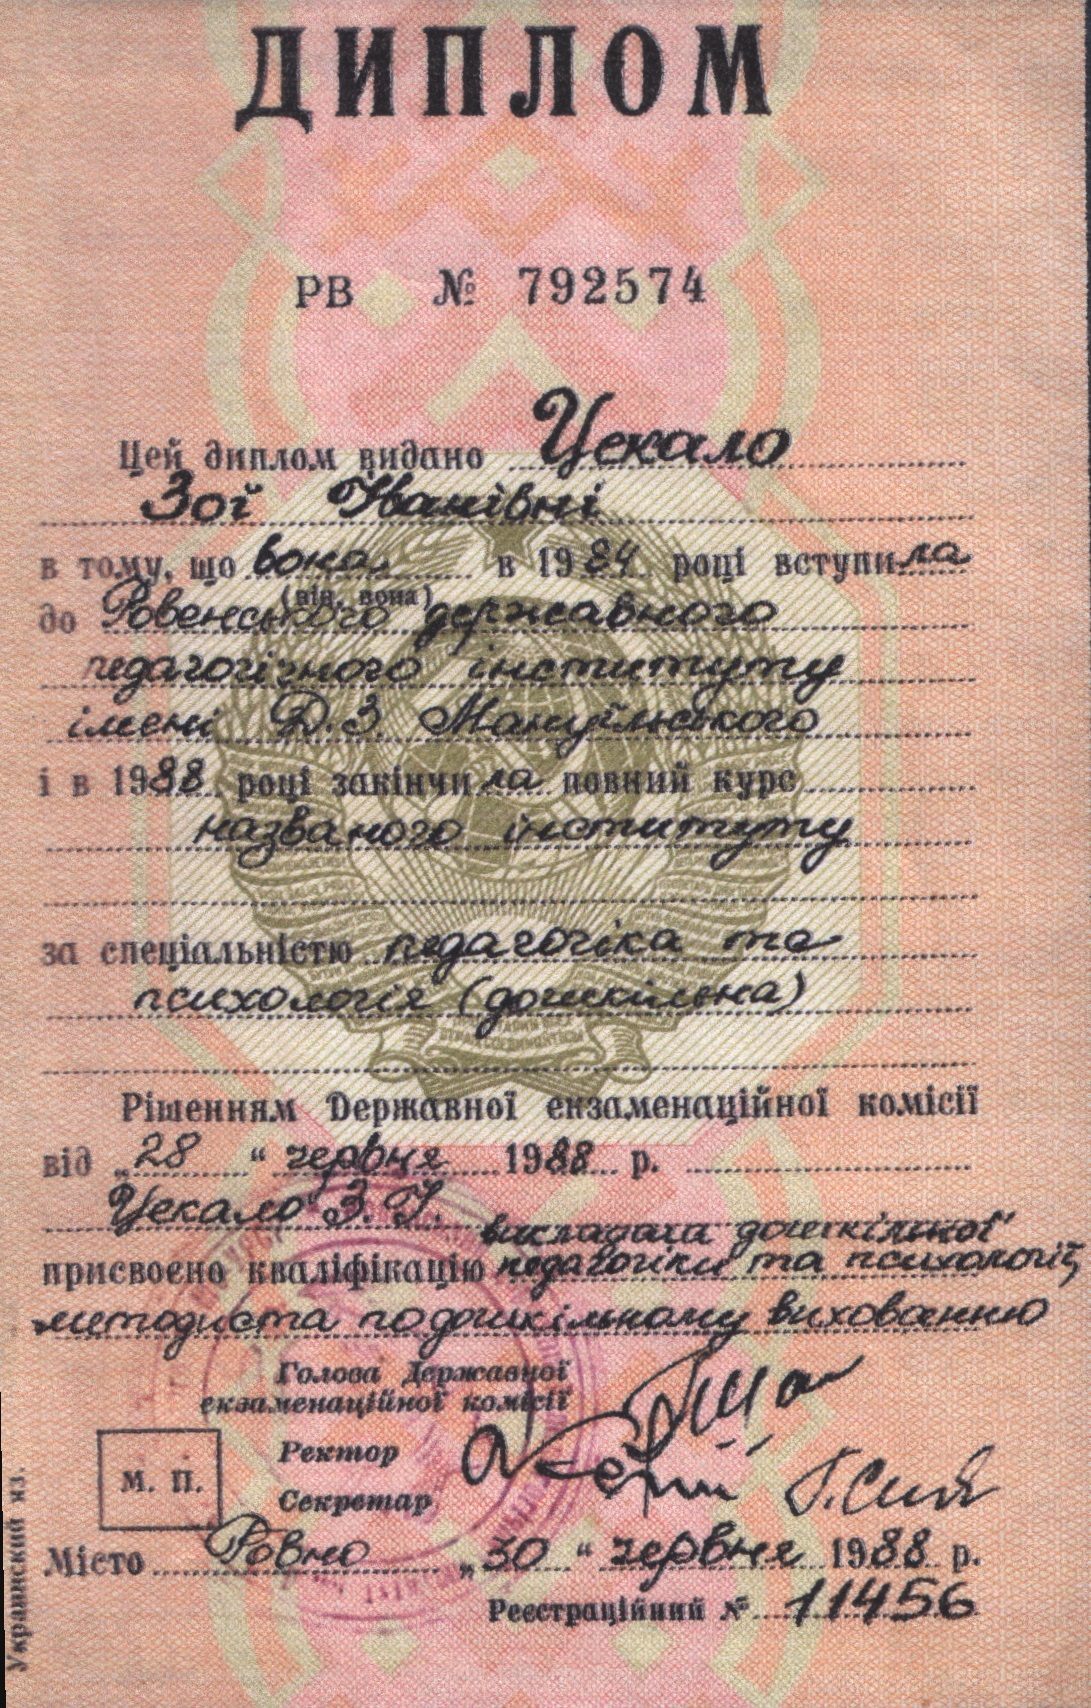 ДИПЛОМ
РВ № 792574
Цей диплом видано Цекало
Зої Іванівні
в тому, що вона в 1984 році вступила
(він, вона)
до Ровенського державного
педагогічного інституту
імені Д.З. Мануїльського
і в 1988 році закінчила повний курс
названого інституту
за спеціальністю педагогіка та
психологія (дошкільна)
Рішенням Державної екзаменаційної комісії
від „28“ червня 1988 р.
Цекало З. І.
викладача дошкільної
присвоєно кваліфікацію педагогіки та психології,
методиста по дошкільному вихованню
Голова Державної
екзаменаційної комісії
Ректор
М. П.
Секретар
Місто Ровно „30“ червня 1988 р.
Реєстраційний № 11456
Украинский яз.